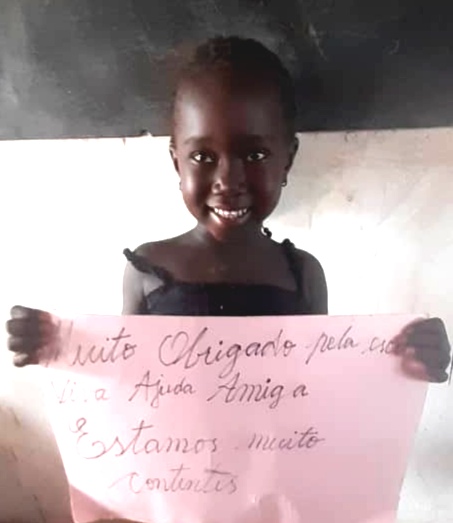 Muito Obrigado pela
Viva Ajuda Amiga
Estamos muito
contentes